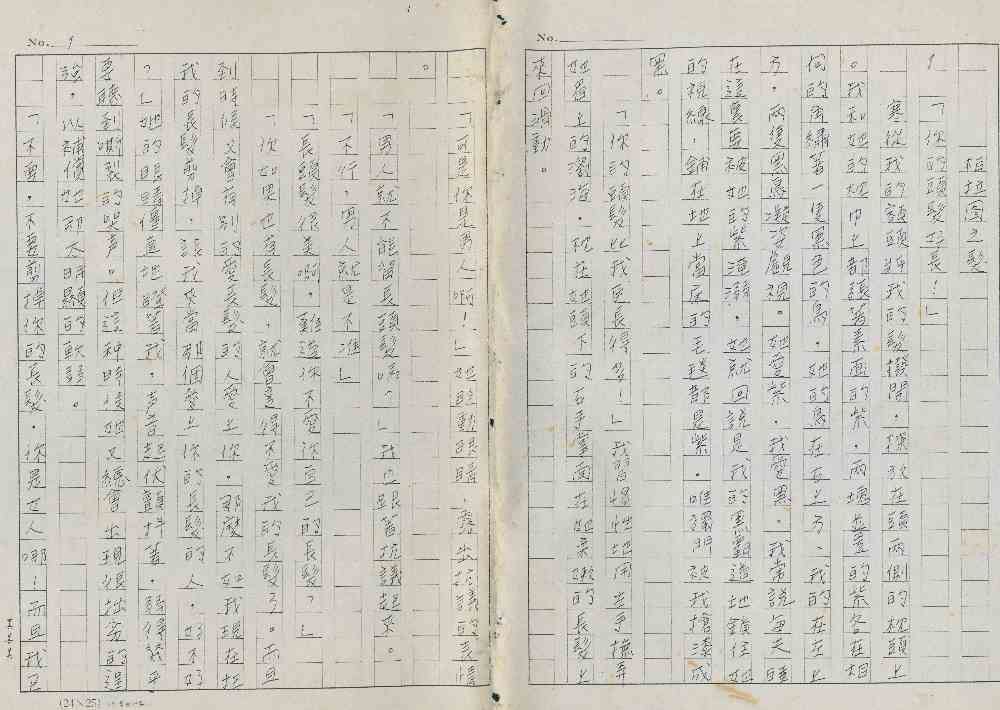 柏拉圖之髮
「你的頭髮好長!」
寒從我的額頭將我的髮撥開,攤放在頭兩側的枕頭上
。我和她的枕巾上都鋪著素面的紫,兩塊並置的紫各在相
同的角繡著一隻黑色的鳥,她的鳥在右上方,我的在左上
方,兩隻黑鳥凝姿覷視。她愛紫,我愛黑。我常說每天睡
在這裏要被她的紫淹溺。她就回說是我的黑霸道地鎖住她
的視線,鋪在地上當床的毛毯都是紫,唯獨門被我搶漆成
黑。
「你的頭髮比我更長得多!」我習慣性地用左手撫弄
她眉上的瀏海,枕在她頭下的右手掌面在她柔嫩的長髮上
來回滑動。
No. 1
「可是你是男人啊!」她眨動眼睛,露出抗議的表情
。
「男人就不能留長頭髮嗎?」我也跟著抗議起來。
「不行,男人就是不准」
「長頭髮很美啊,難道你不愛你自己的長髮?」
「你如果也蓄長髮,就會變得不愛我的長髮了。而且
到時候又會有別的愛長髮的人愛上你。那麼不如我現在把
我的長髮剪掉,讓我來當那個愛上你的長髮的人,好不好
?」她的眼睛僵直地瞪著我,声音起伏顫抖著,弱得幾乎
要聽到撕裂的哭声。但這種時候她又總會出現很的逞
,以補償她那太明顯的軟弱。
「不要,不要剪掉你的長髮,你是女人哪!而且我已
No.
(24×25)